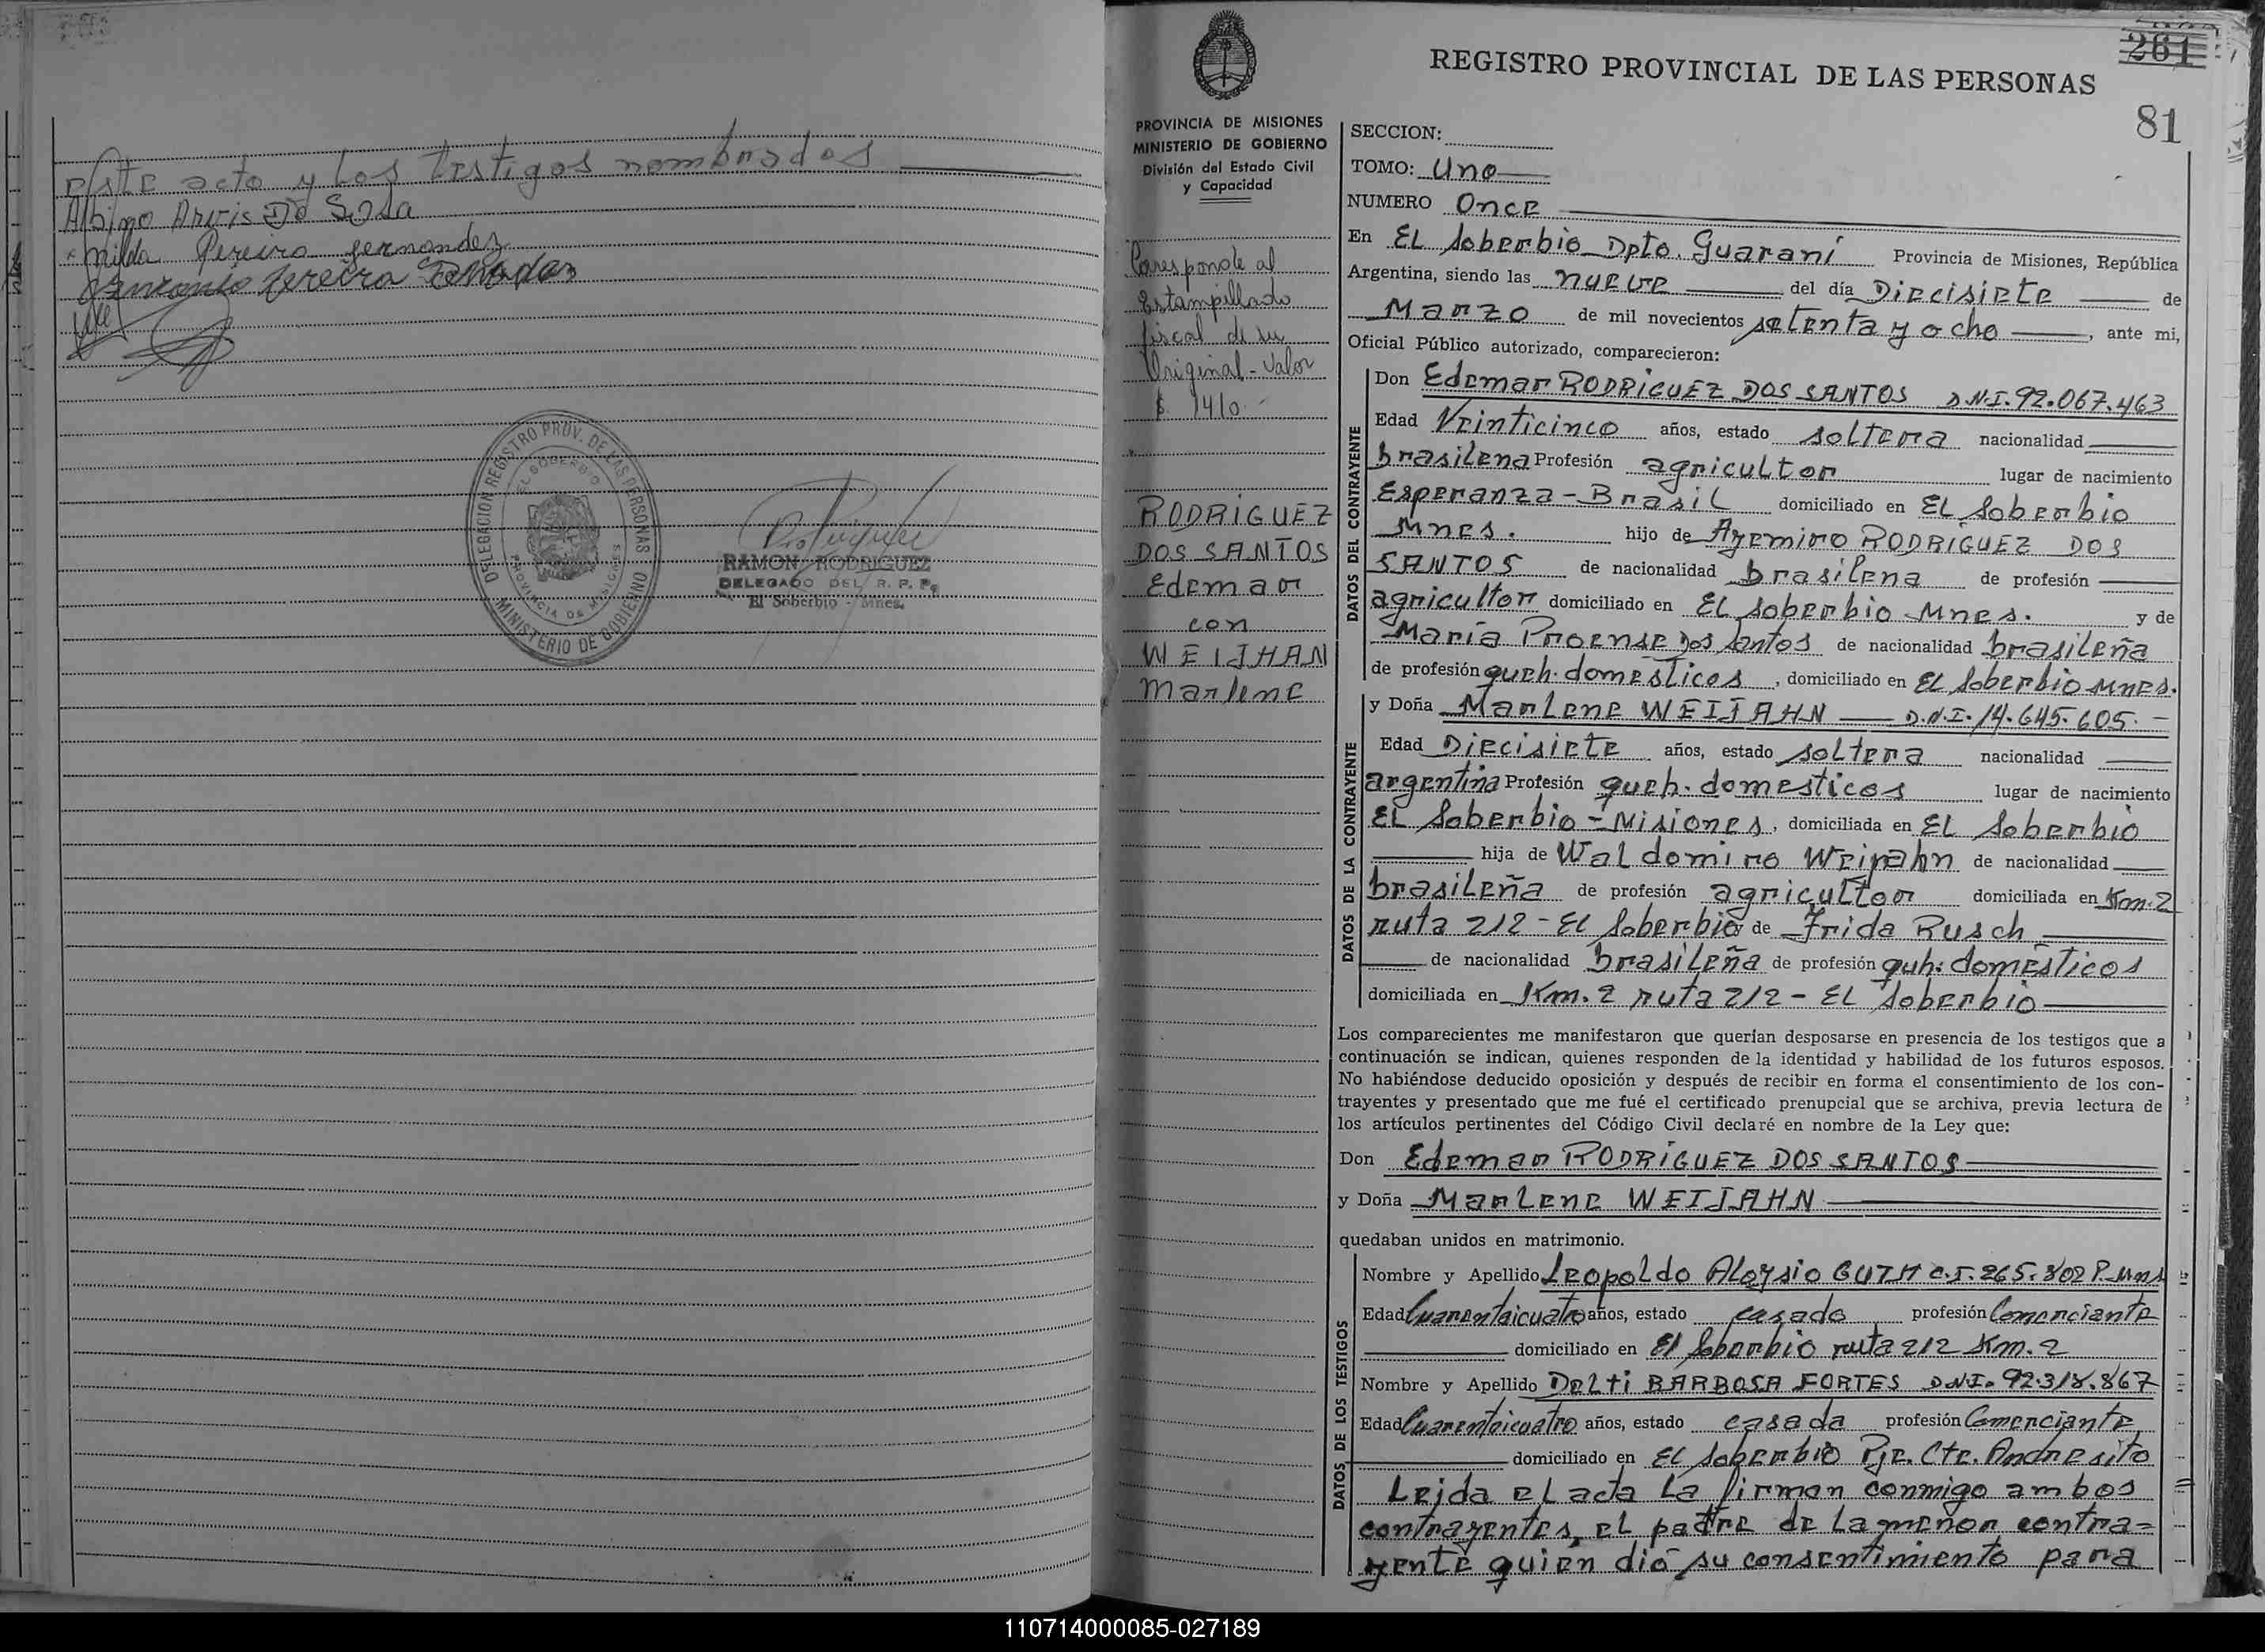 este acto y los testigos nombrados
Albino Arvis De Sosa
Milda Pereira Fernandez
Antonio Pereira
DELEGACION REGISTRO PROV. DE LAS PERSONAS
EL SOBERBIO
PROVINCIA DE MISIONES
MINISTERIO DE GOBIERNO
RAMON RODRIGUEZ
DELEGADO DEL R. P. P.
El Soberbio - Mnes.
261
REGISTRO PROVINCIAL DE LAS PERSONAS
81
PROVINCIA DE MISIONES
MINISTERIO DE GOBIERNO
División del Estado Civil
y Capacidad
Corresponde al
Estampillado
fiscal de su
Original - Valor
$ 1410.-
RODRIGUEZ
DOS SANTOS
Edemar
con
WEIJHAN
Marlene
SECCION:
TOMO: Uno
NUMERO Once
En El Soberbio Dpto. Guaraní Provincia de Misiones, República
Argentina, siendo las nueve del día Diecisiete de
Marzo de mil novecientos setenta y ocho, ante mi,
Oficial Público autorizado, comparecieron:
DATOS DEL CONTRAYENTE
Don Edemar RODRIGUEZ DOS SANTOS D.N.I. 92.067.463
Edad Veinticinco años, estado soltero nacionalidad
brasilena Profesión agricultor lugar de nacimiento
Esperanza - Brasil domiciliado en El Soberbio
Mnes. hijo de Azemiro RODRIGUEZ DOS
SANTOS de nacionalidad brasilena de profesión
agricultor domiciliado en El Soberbio Mnes. y de
María Proense Dos Santos de nacionalidad brasileña
de profesión queh. domésticos, domiciliado en El Soberbio Mnes.
DATOS DE LA CONTRAYENTE
y Doña Marlene WEIJAHN D.N.I. 14.645.605.-
Edad Diecisiete años, estado soltera nacionalidad
argentina Profesión queh. domesticos lugar de nacimiento
El Soberbio - Misiones, domiciliada en El Soberbio
hija de Waldomiro Weijahn de nacionalidad
brasileña de profesión agricultor domiciliada en Km. 2
ruta 212 - El Soberbio y de Frida Rusch
de nacionalidad brasileña de profesión quh. domésticos
domiciliada en Km. 2 ruta 212 - El Soberbio
Los comparecientes me manifestaron que querían desposarse en presencia de los testigos que a
continuación se indican, quienes responden de la identidad y habilidad de los futuros esposos.
No habiéndose deducido oposición y después de recibir en forma el consentimiento de los con-
trayentes y presentado que me fué el certificado prenupcial que se archiva, previa lectura de
los artículos pertinentes del Código Civil declaré en nombre de la Ley que:
Don Edemar RODRIGUEZ DOS SANTOS
y Doña Marlene WEIJAHN
quedaban unidos en matrimonio.
DATOS DE LOS TESTIGOS
Nombre y Apellido Leopoldo Aloysio GUTH C.I. 265.802 P. Mns
Edad Cuarentaicuatro años, estado casado profesión Comerciante
domiciliado en El Soberbio ruta 212 Km. 2
Nombre y Apellido Delti BARBOSA FORTES D.N.I. 92.318.867
Edad Cuarentaicuatro años, estado casada profesión Comerciante
domiciliado en El Soberbio Pje. Cte. Andresito
Leida el acta la firman conmigo ambos
contrayentes, el padre de la menor contra-
yente quien dió su consentimiento para
110714000085-027189